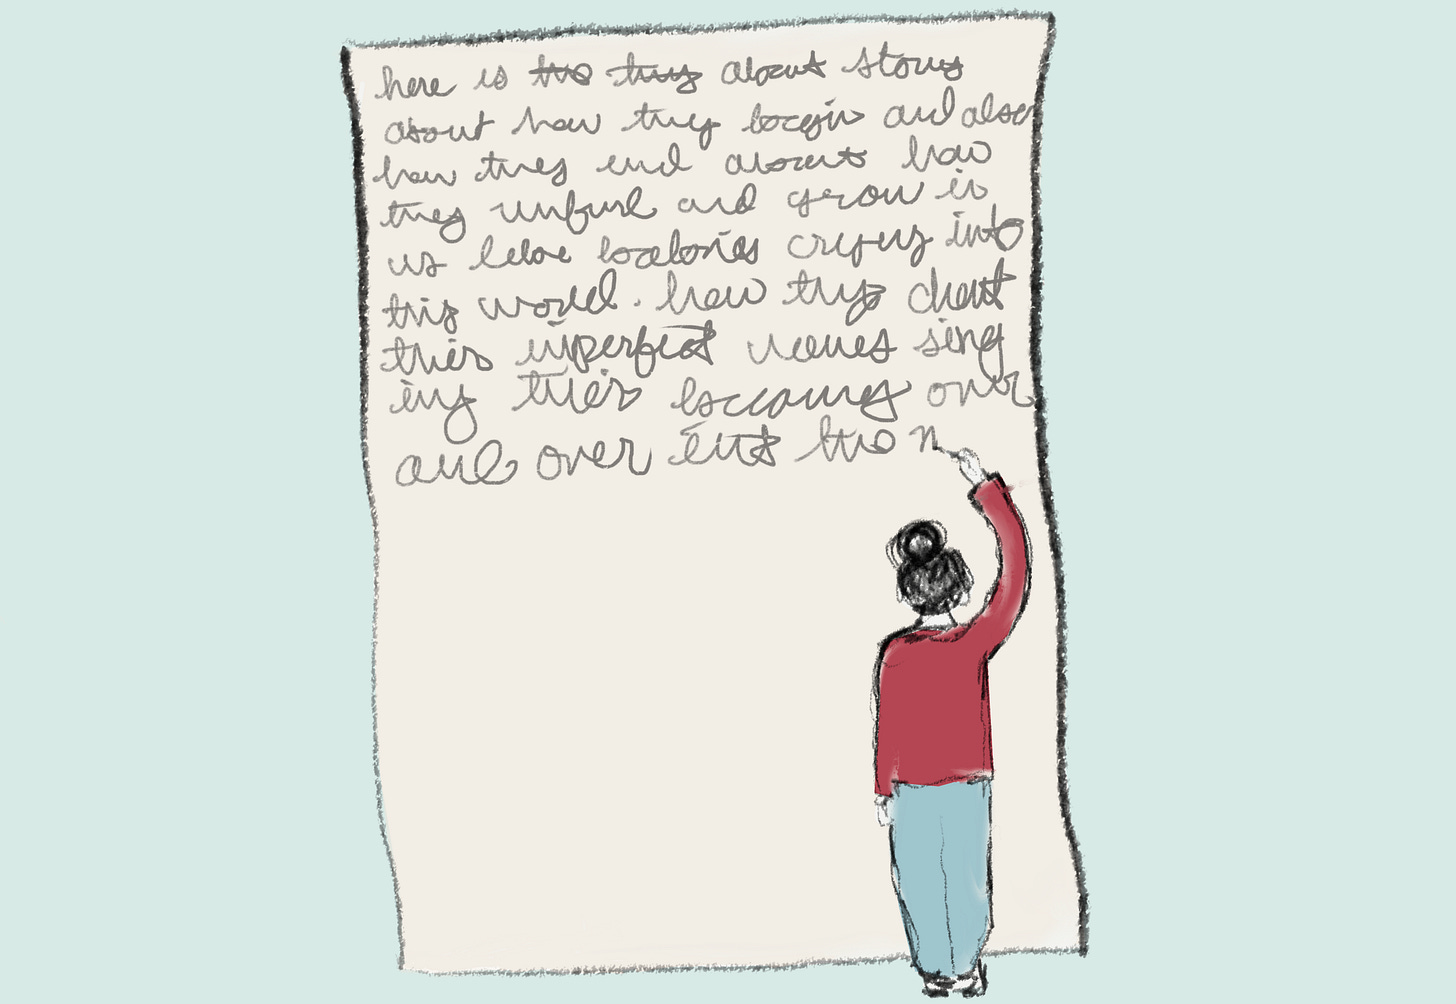 here is the thing about storys
about how they begin and also
how they end about how
they unfurl and grow in
us like babies crying into
this world. how they chant
their imperfect names sing
ing their becoming over
and over into the n